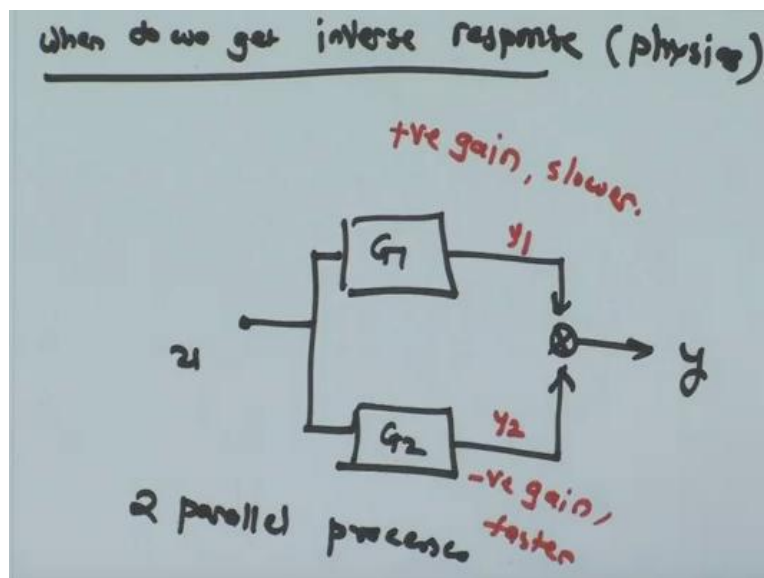 when do we get inverse response (physics)
+ve gain, slower.
G1
y1
u
y
G2
y2
-ve gain,
faster
2 parallel processes